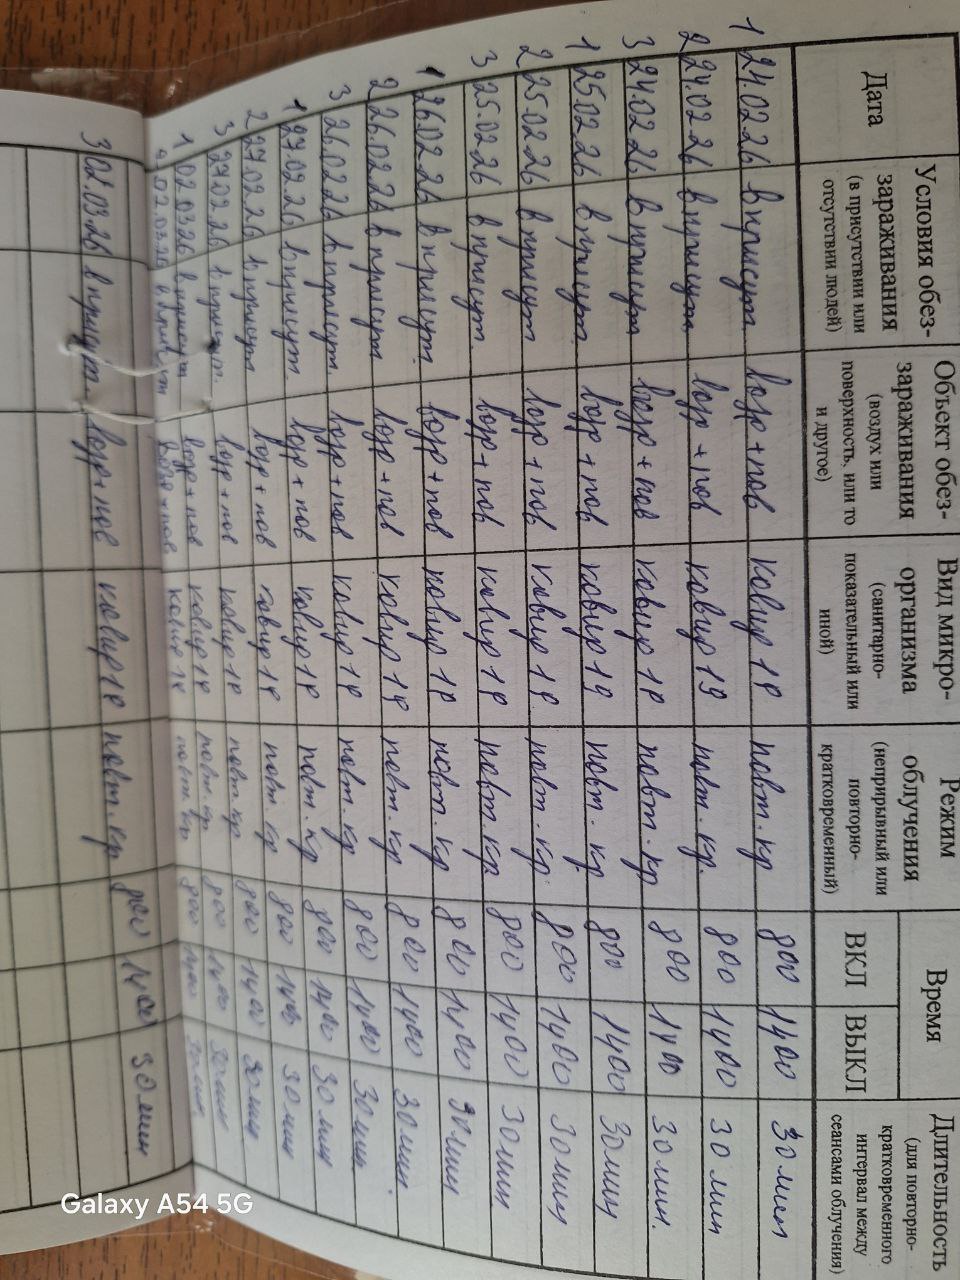 Дата Условия обез- зараживания (в присутствии или отсутствии людей) Объект обез- зараживания (воздух или поверхность, или то и другое) Вид микро- организма (санитарно- показательный или иной) Режим облучения (неприрывный или повторно- кратковременный) Время ВКЛ ВЫКЛ Длительность (для повторно- кратковременного интервал между сеансами облучения)
1 24.02.26 в присут. возд+пов ковид 19 повт.кр 800 1400 30 мин
2 24.02.26 в присут. возд+пов ковид 19 повт.кр. 800 1400 30 мин
3 24.02.26 в присут возд+пов ковид 19 повт.кр 800 1400 30 мин.
1 25.02.26 в присут. возд+пов ковид 19 повт.кр. 800 1400 30мин
2 25.02.26 в присут возд+пов ковид 19 повт.кр. 800 1400 30мин
3 25.02.26 в присут. возд+пов ковид 19 повт.кр. 800 1400 30мин
1 26.02.26 в присут. возд+пов ковид 19 повт.кр 800 1400 30мин
2 26.02.26 в присут возд+пов ковид 19 повт.кр 800 1400 30мин.
3 26.02.26 в присут. возд+пов ковид 19 повт.кр 800 1400 30мин.
1 27.02.26 в присут. возд+пов ковид 19 повт.кр 800 1400 30 мин
2 27.02.26 в присут возд+пов ковид 19 повт.кр 800 1400 30мин
3 27.02.26 в присут. возд+пов ковид 19 повт.кр 800 1400 30мин
1 02.03.26 в присут возд+пов ковид 19 повт.кр 800 1400 30мин
02.03.26 в присут возд+пов ковид 19 повт.кр 800 1400 30мин
3 02.03.26 в присут. возд+пов ковид 19 повт.кр 800 1400 30мин
Galaxy A54 5G